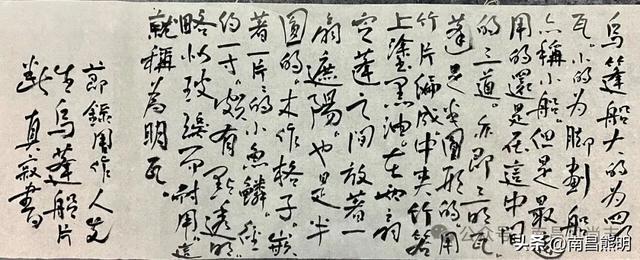 烏篷船大的为四明
瓦。小的为脚劃船
亦稱小船但是最適
用的還是在這中間
的三道。亦即三明瓦。
篷是半圓形的。用
竹片編成。中夹竹箬
上塗黑油。在两扇
定篷之間放着一
扇遮陽。也是半
圓的。木作格子。嵌
著一片々的小魚鱗。徑
约一寸。頗有點透明。
略似玻璃而耐用。這
就稱為明瓦
節錄周作人先
生烏篷船片
断 真寂書
公众号
头条@南昌熊明